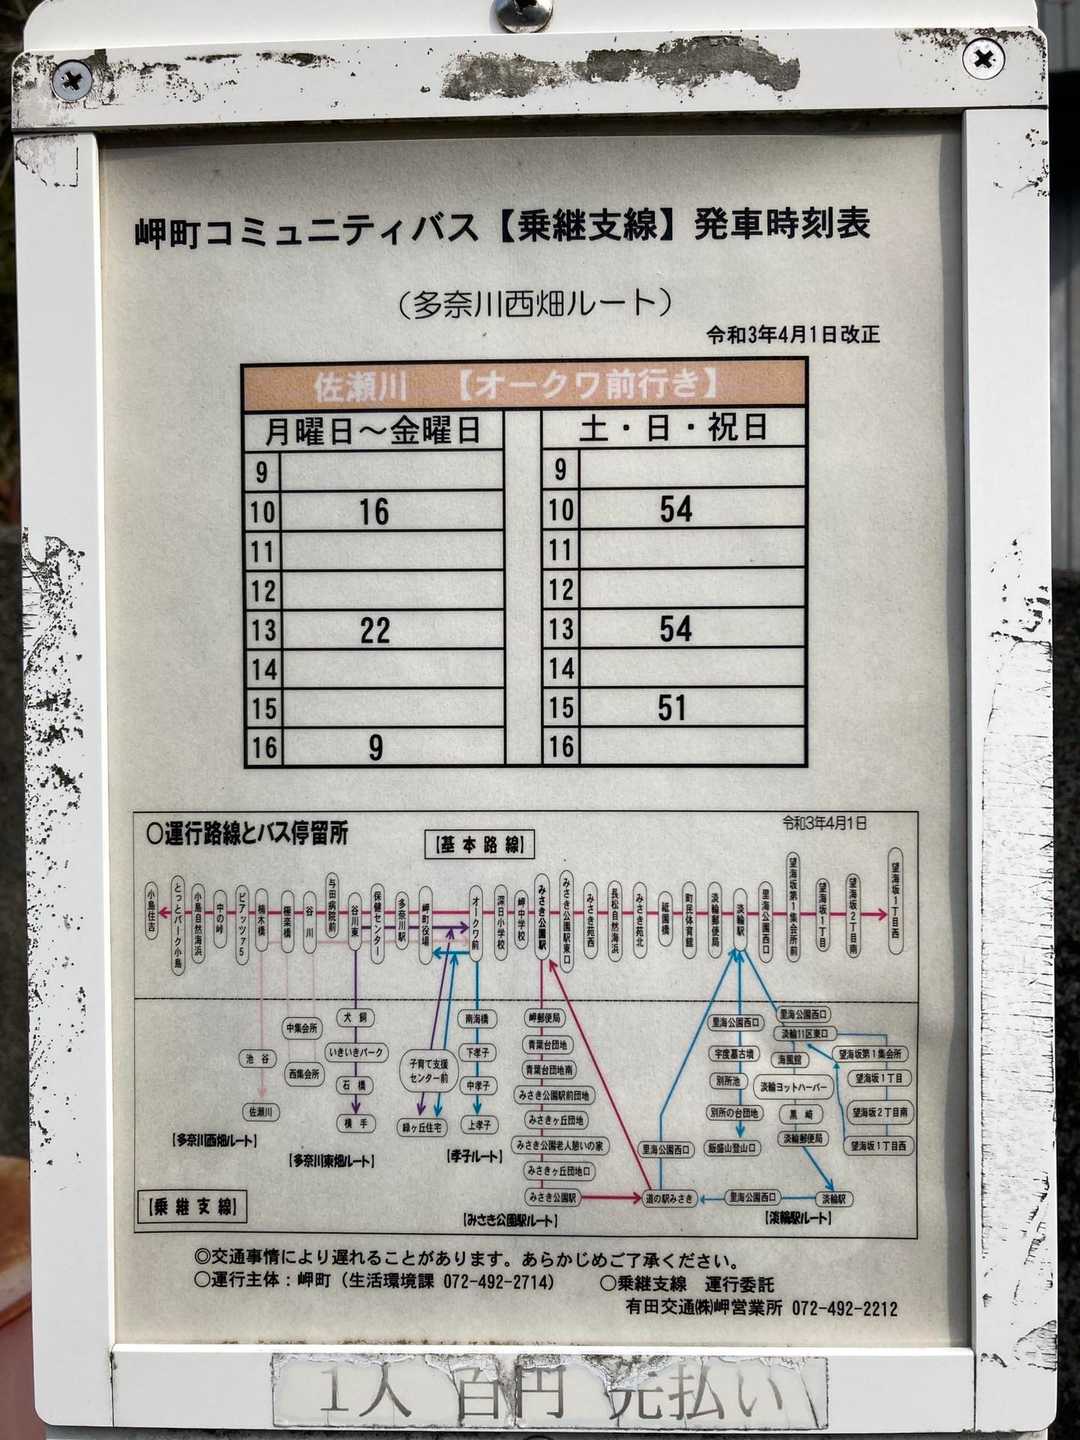 岬町コミュニティバス【乗継支線】発車時刻表
（多奈川西畑ルート）
令和3年4月1日改正
佐瀬川　【オークワ前行き】
月曜日～金曜日　土・日・祝日
9　9
10　16　10　54
11　11
12　12
13　22　13　54
14　14
15　15　51
16　9　16
○運行路線とバス停留所
令和3年4月1日
【基本路線】
小島住吉
とっとパーク小島
小島自然海浜
中の峠
ピアッツァ5
楠木橋
極楽橋
谷川
与田病院前
谷川東
保健センター
多奈川駅
岬町役場
オークワ前
深日小学校
岬中学校
みさき公園駅
みさき公園駅東口
みさき苑西
長松自然海浜
みさき苑北
祗園橋
町民体育館
淡輪郵便局
淡輪駅
里海公園西口
望海坂第1集会所前
望海坂1丁目
望海坂2丁目南
望海坂1丁目西
池谷
佐瀬川
【多奈川西畑ルート】
中集会所
西集会所
犬飼
いきいきパーク
石橋
横手
【多奈川東畑ルート】
子育て支援センター前
緑ヶ丘住宅
南海橋
下孝子
中孝子
上孝子
【孝子ルート】
岬郵便局
青葉台団地
青葉台団地南
みさき公園駅前団地
みさきヶ丘団地
みさき公園老人憩いの家
みさきヶ丘団地口
みさき公園駅
【みさき公園駅ルート】
道の駅みさき
里海公園西口
里海公園西口
宇度墓古墳
別所池
別所の台団地
飯盛山登山口
里海公園西口
淡輪11区東口
海風館
淡輪ヨットハーバー
黒崎
淡輪郵便局
淡輪駅
里海公園西口
望海坂第1集会所
望海坂1丁目
望海坂2丁目南
望海坂1丁目西
【淡輪駅ルート】
【乗継支線】
◎交通事情により遅れることがあります。あらかじめご了承ください。
○運行主体：岬町（生活環境課 072-492-2714）　○乗継支線　運行委託
有田交通㈱岬営業所 072-492-2212
1人 百円 先払い